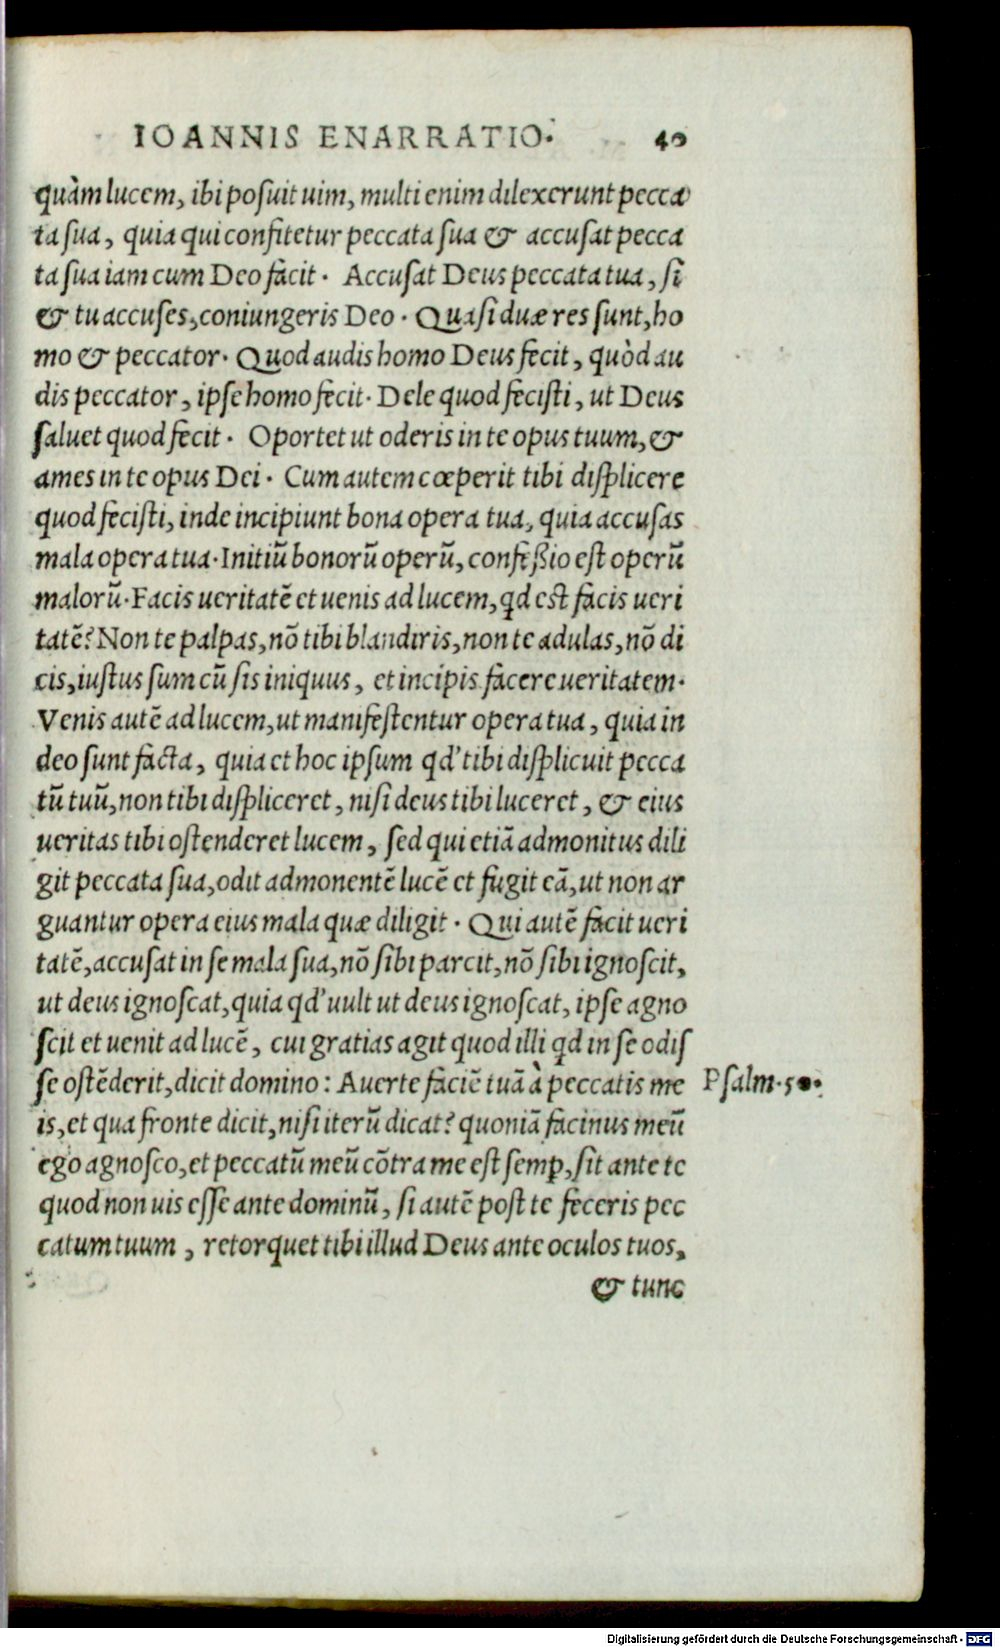 IOANNIS ENARRATIO. 40
quàm lucem, ibi posuit uim, multi enim dilexerunt pecca
ta sua, quia qui confitetur peccata sua & accusat pecca
ta sua iam cum Deo facit. Accusat Deus peccata tua, si
& tu accuses, coniungeris Deo. Quasi duæ res sunt, ho
mo & peccator. Quod audis homo Deus fecit, quòd au
dis peccator, ipse homo fecit. Dele quod fecisti, ut Deus
saluet quod fecit. Oportet ut oderis in te opus tuum, &
ames in te opus Dei. Cum autem cœperit tibi displicere
quod fecisti, inde incipiunt bona opera tua, quia accusas
mala opera tua. Initiũ bonorũ operũ, confeßio est operũ
malorũ. Facis ueritatẽ et uenis ad lucem, qd est facis ueri
tatẽ? Non te palpas, nõ tibi blandiris, non te adulas, nõ di
cis, iustus sum cũ sis iniquus, et incipis facere ueritatem.
Venis autẽ ad lucem, ut manifestentur opera tua, quia in
deo sunt facta, quia et hoc ipsum qd' tibi displicuit pecca
tũ tuũ, non tibi displiceret, nisi deus tibi luceret, & eius
ueritas tibi ostenderet lucem, sed qui etiã admonitus dili
git peccata sua, odit admonentẽ lucẽ et fugit eã, ut non ar
guantur opera eius mala quæ diligit. Qui autẽ facit ueri
tatẽ, accusat in se mala sua, nõ sibi parcit, nõ sibi ignoscit,
ut deus ignoscat, quia qd' uult ut deus ignoscat, ipse agno
scit et uenit ad lucẽ, cui gratias agit quod illi qd in se odis
se ostẽderit, dicit domino: Auerte faciẽ tuã à peccatis me
is, et qua fronte dicit, nisi iterũ dicat? quoniã facinus meũ
ego agnosco, et peccatũ meũ cõtra me est semp, sit ante te
quod non uis esse ante dominũ, si autẽ post te feceris pec
catum tuum, retorquet tibi illud Deus ante oculos tuos,
& tunc
Psalm. 50.
Digitalisierung gefördert durch die Deutsche Forschungsgemeinschaft - DFG